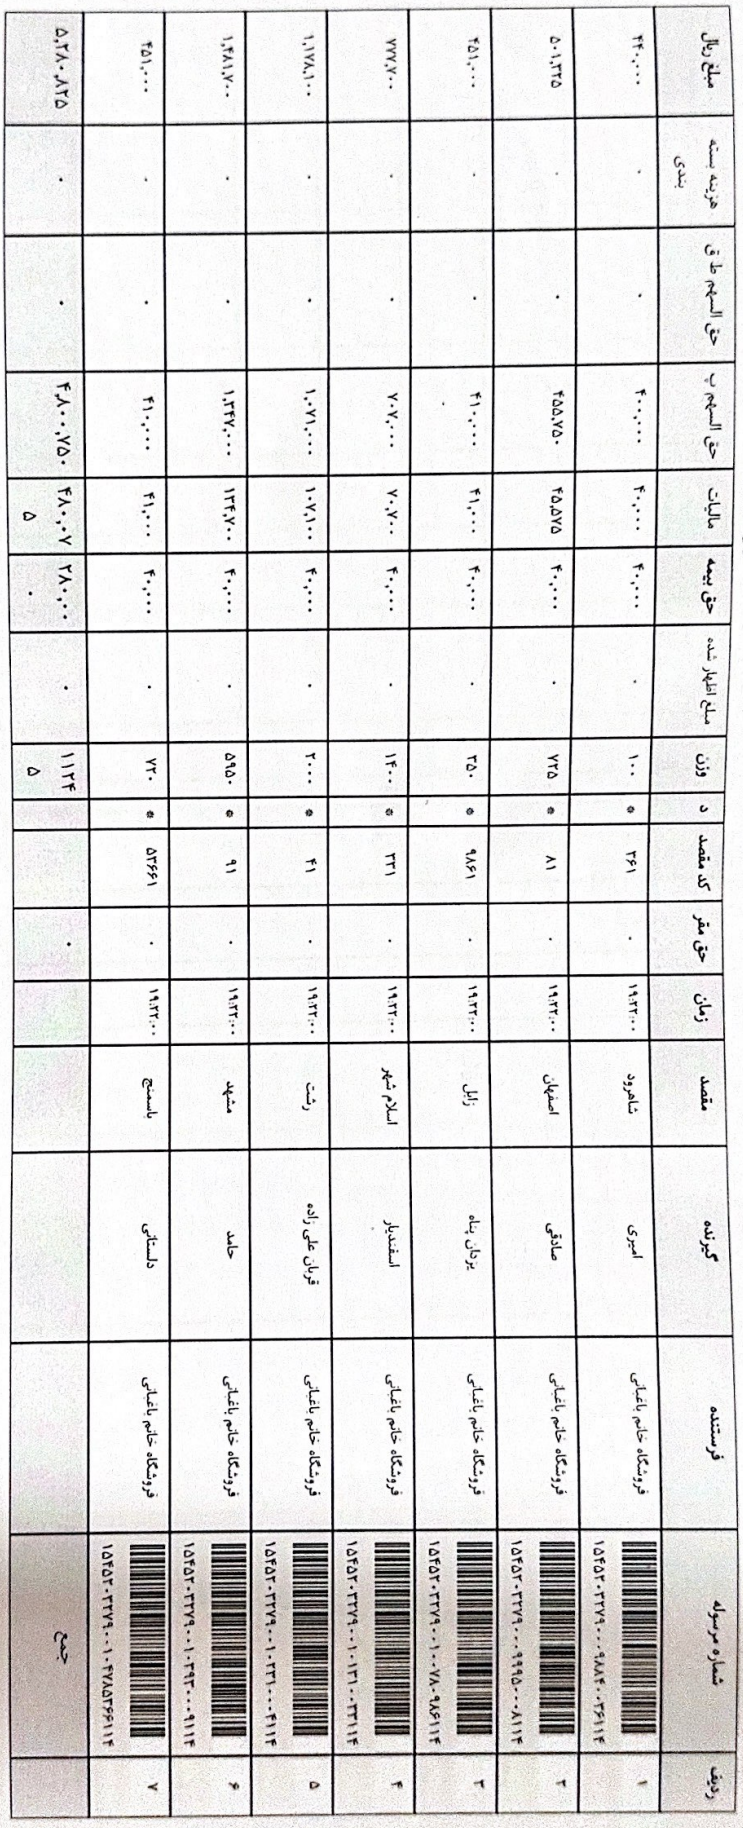 ردیف شماره مرسوله فرستنده گیرنده مقصد زمان حق مقر کد مقصد د وزن مبلغ اظهار شده حق بیمه مالیات حق السهم پ حق السهم ط ق هزینه بسته مبلغ ریال
بندی
۱ ۱۵۴۵۲۰۳۲۷۹۰۰۰۹۸۸۴۰۰۳۶۱۱۴ فروشگاه خانم باغبانی امیری شاهرود ۱۹:۲۲:۰۰ ۰ ۳۶۱ * ۱۰۰ ۰ ۴۰,۰۰۰ ۴۰,۰۰۰ ۴۰۰,۰۰۰ ۰ ۰ ۴۴۰,۰۰۰
۲ ۱۵۴۵۲۰۳۲۷۹۰۰۰۹۹۹۵۰۰۰۸۱۱۴ فروشگاه خانم باغبانی صادقی اصفهان ۱۹:۲۲:۰۰ ۰ ۸۱ * ۷۲۵ ۰ ۴۰,۰۰۰ ۴۵,۵۷۵ ۴۵۵,۷۵۰ ۰ ۰ ۵۰۱,۳۲۵
۳ ۱۵۴۵۲۰۳۲۷۹۰۰۱۰۰۷۸۰۹۸۶۱۱۴ فروشگاه خانم باغبانی یزدان پناه زابل ۱۹:۲۲:۰۰ ۰ ۹۸۶۱ * ۳۵۰ ۰ ۴۰,۰۰۰ ۴۱,۰۰۰ ۴۱۰,۰۰۰ ۰ ۰ ۴۵۱,۰۰۰
۴ ۱۵۴۵۲۰۳۲۷۹۰۰۱۰۱۳۱۰۰۳۳۱۱۴ فروشگاه خانم باغبانی اسفندیار اسلام شهر ۱۹:۲۲:۰۰ ۰ ۳۳۱ * ۱۴۰۰ ۰ ۴۰,۰۰۰ ۷۰,۷۰۰ ۷۰۷,۰۰۰ ۰ ۰ ۷۷۷,۷۰۰
۵ ۱۵۴۵۲۰۳۲۷۹۰۰۱۰۲۳۱۰۰۰۴۱۱۴ فروشگاه خانم باغبانی قربان علی زاده رشت ۱۹:۲۲:۰۰ ۰ ۴۱ * ۲۰۰۰ ۰ ۴۰,۰۰۰ ۱۰۷,۱۰۰ ۱,۰۷۱,۰۰۰ ۰ ۰ ۱,۱۷۸,۱۰۰
۶ ۱۵۴۵۲۰۳۲۷۹۰۰۱۰۳۹۳۰۰۰۹۱۱۴ فروشگاه خانم باغبانی حامد مشهد ۱۹:۲۲:۰۰ ۰ ۹۱ * ۵۹۵۰ ۰ ۴۰,۰۰۰ ۱۳۴,۷۰۰ ۱,۳۴۷,۰۰۰ ۰ ۰ ۱,۴۸۱,۷۰۰
۷ ۱۵۴۵۲۰۳۲۷۹۰۰۱۰۴۷۸۵۳۶۶۱۱۴ فروشگاه خانم باغبانی دلستانی باسمنج ۱۹:۲۲:۰۰ ۰ ۵۳۶۶۱ * ۷۲۰ ۰ ۴۰,۰۰۰ ۴۱,۰۰۰ ۴۱۰,۰۰۰ ۰ ۰ ۴۵۱,۰۰۰
جمع ۰ ۱۱۲۴ ۰ ۲۸۰,۰۰ ۴۸۰,۰۷ ۴,۸۰۰,۷۵۰ ۰ ۰ ۵,۲۸۰,۸۲۵
۵ ۰ ۵